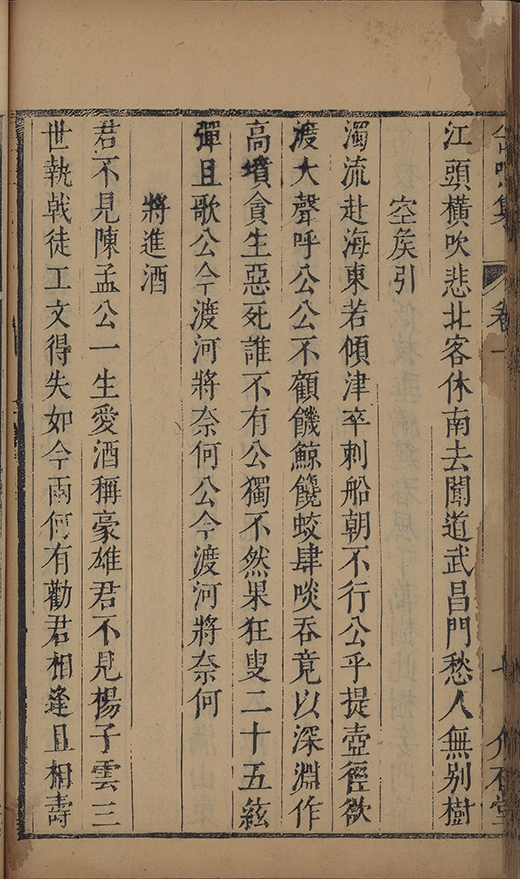 集 卷一
江頭橫吹悲北客休南去聞道武昌門愁人無別樹
空矦引
濁流赴海東若傾津卒刺船朝不行公乎提壺徑欲
渡大聲呼公公不顧饑鯨饞蛟肆啖吞竟以深淵作
高墳貪生惡死誰不有公獨不然果狂叟二十五絃
彈且歌公今渡河將奈何公今渡河將奈何
將進酒
君不見陳孟公一生愛酒稱豪雄君不見楊子雲三
世執戟徒工文得失如今兩何有勸君相逢且相壽